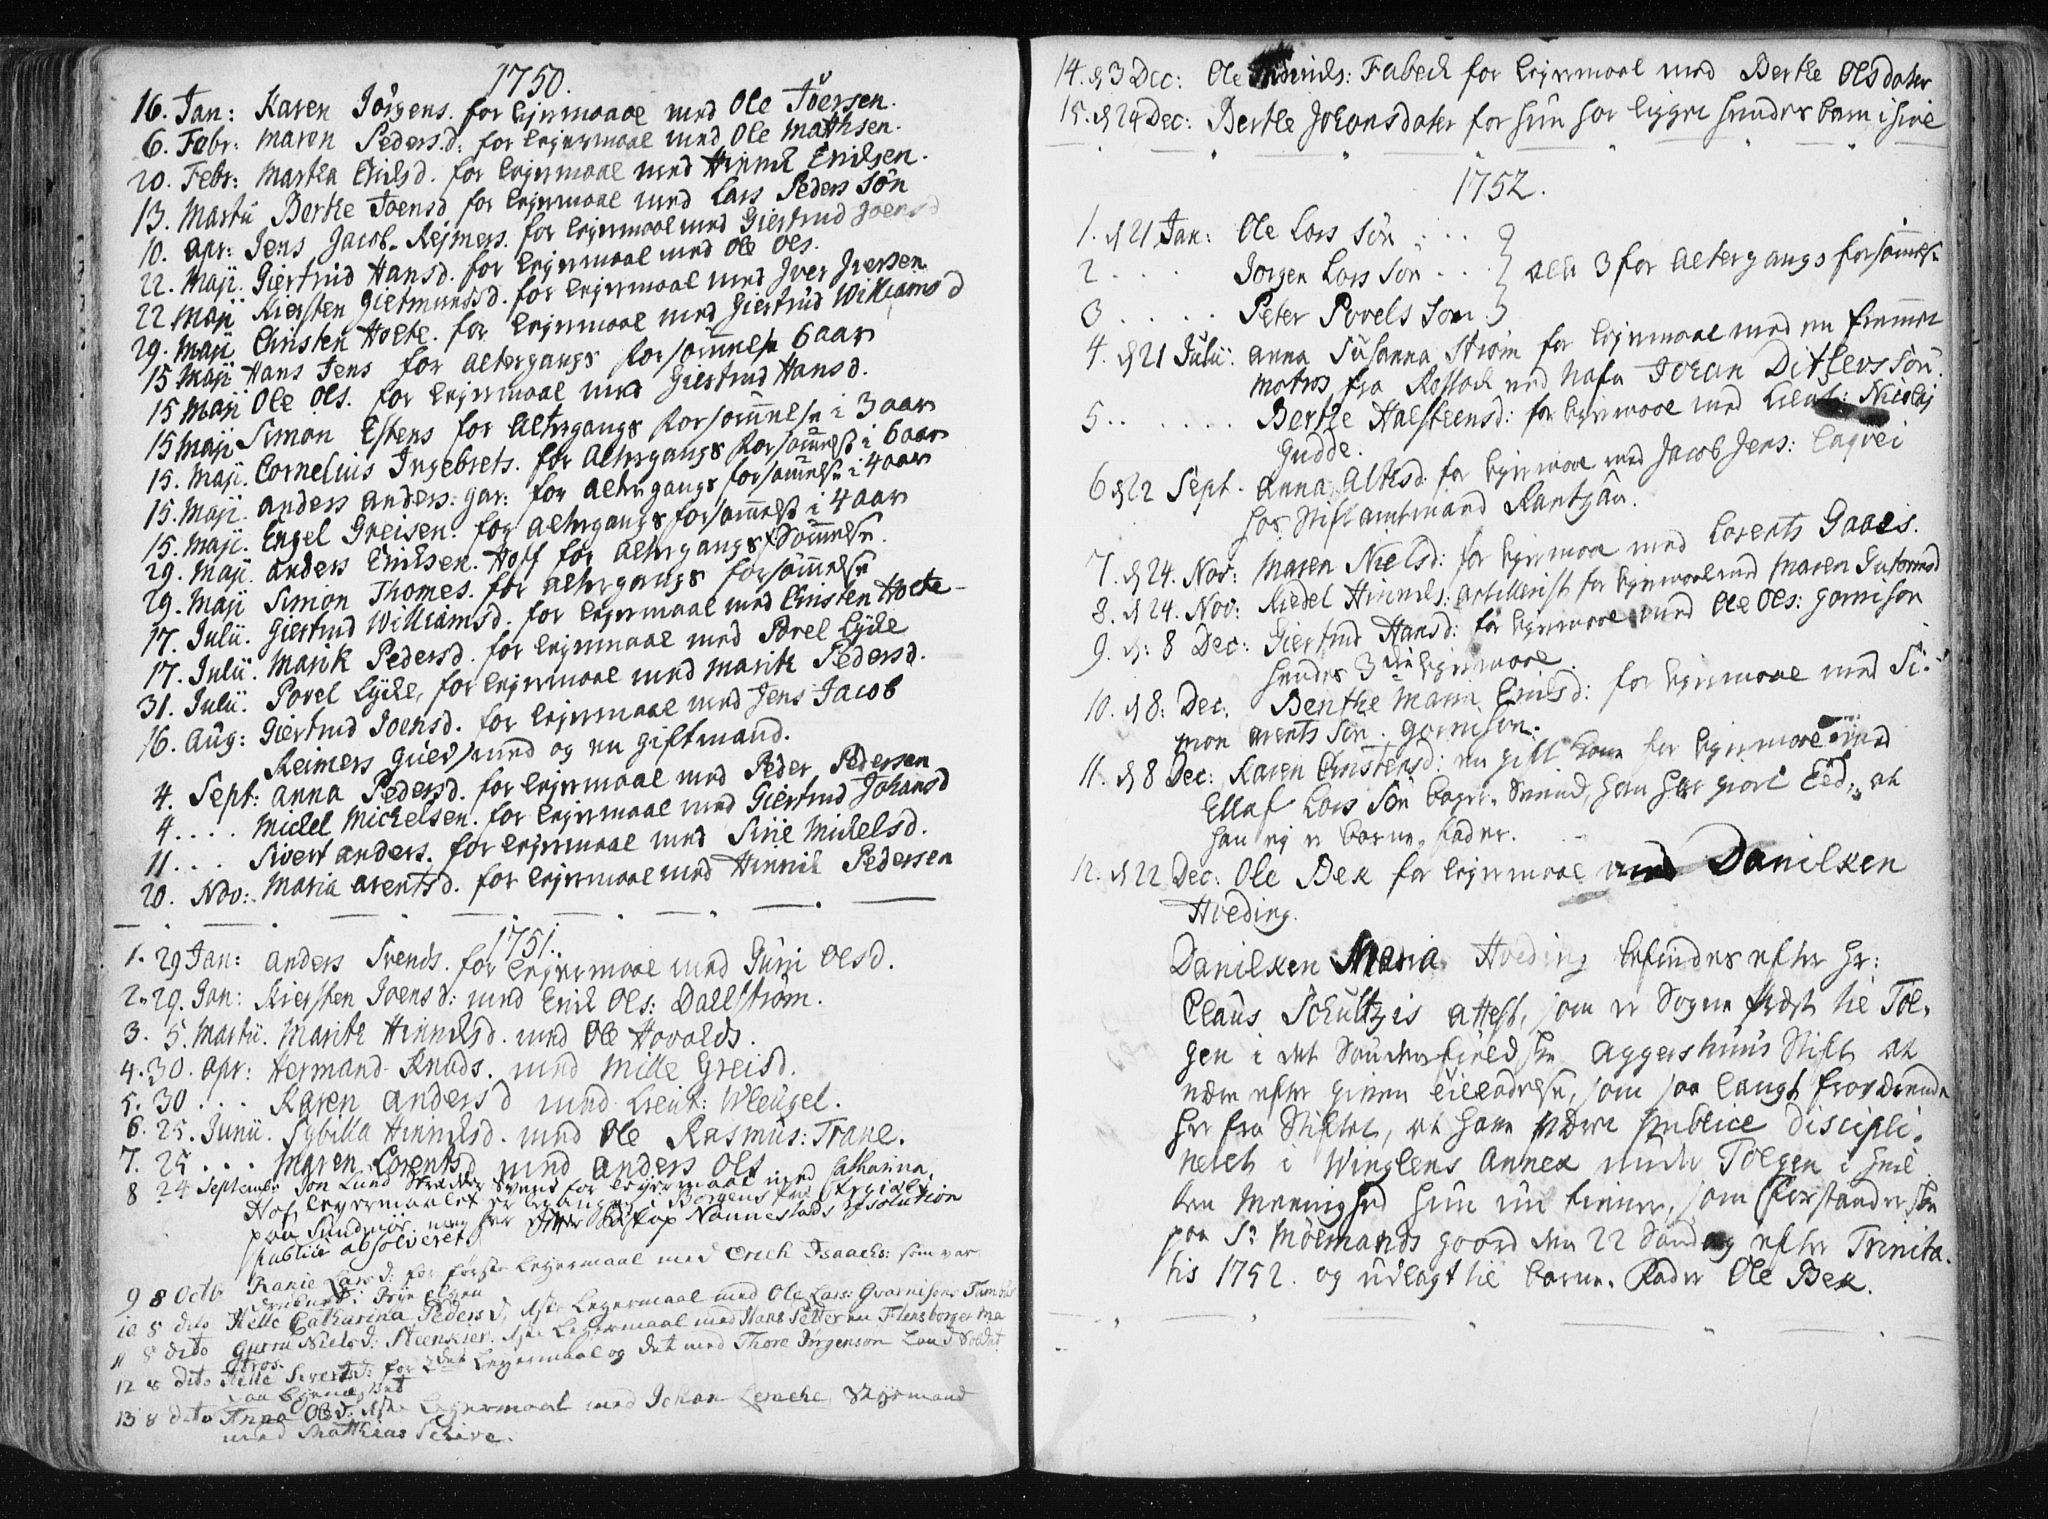 1750.
16. Jan: Karen Jörgens. for leyermaal med Ole Joersen.
6. Febr: Maren Pedersd: for leyermaal med Ole Mathsen.
20. Febr: Martha Erichsd. for leyermaal med Hinrich Erichsen.
13. Martii Berthe Joensd for leyermaal med Lars Peders Sön
10. Apr: Jens Jacob Rejmers. for leyermaal med Giertrud Joensd
22. Maji. Giertrud Hansd. for leyermaal med Ole Ols.
22 Maji Kiersten Gietmundsd. for leyermaal med Iver Iversen
29. Maji Christen Holte. for leyermaal med Giertrud Williamsd
15 Maji Hans Jens for Altergangs forsömmelse 6 aar
15 Maji Ole Ols. for leyermaal med Giertrud Hansd.
15 Maji Simon Estens for Altergangs forsömmelse i 3 aar
15. Maji. Cornelius Ingebrets. for Altergangs forsömmelse i 6 aar
15. Maji. Anders Anders: gar: for Altergangs forsömmelse i 4 aar
15. Maji. Engel Greisen. for Altergangs forsömmelse i 4 aar
29. Maji. Anders Erichsen. Hoff for Altergangs fSömmelse.
29. Maji Simon Thomes. for Altergangs forsömmelse
17. Julii. Giertrud Williamsd. for leyermaal med Christen Holte
17. Julii. Marit Pedersd. for leyermaal med Povel Lyche
31. Julii. Povel Lyche, for leyermaal med Marith Pedersd.
16. Aug: Giertrud Joensd. for leyermaal med Jens Jacob
Reimers Guersmed og en gift mand.
4. Sept: Anna Pedersd. for leyermaal med Peder Pedersen
4 .... Michel Michelsen. for leyermaal med Giertrud Johansd
11 ... Sivert Anders. for leyermaal med Sirie Michelsd.
20. Nov: Maria Arentsd. for leyermaal med Hinrich Pedersen
1751.
1. 29 Jan: Anders Svends. for leyermaal med Guri Olsd.
2. 29. Jan: Kiersten Joensd: med Erich Ols: Dallström.
3. 5. Martii. Marith Hinrichsd. med Ole Hovalds.
4. 30. Apr: Hermand Knuds. med Mille Greisd.
5. 30 ... Karen Andersd med Lieut: Wleugel.
6. 25. Junii. Sybilla Hinrichsd. med Ole Rasmus: Trane.
7. 25 ... Maren Lorentsd med Anders Ols
8 24 Septembr Jon Lund Svend for leyermaal med Catharina
Hof leyermaalet er begangen i Borgens
paa Sundmör, men her efter Biskop Nannestads resolution
publice absolveret
9 8 Octb Ranie Larsd: for förste leyermaal med Erich Isaachs: som var
10 8 dito Helle Catharina Pedersd, 1ste Leyermaal med Ole Lars: Gvarnisons Tambur
11 8 dito Gurru Nielsd: Steenkier. 1ste Leyermaal med Hans Petter en Flensborger Ma
tros.
12 8 dito Helle Sivertsd: for 2det Leyermaal og det med Thore Jörgenson Land Soldat
13 8 dito Anna Olsd: 1ste Leyermaal med Johan Lerache, Styrmand
med Matthias Schive.
14. d 3 Dec: Ole Hinrichs: Fabech for leyermaal med Berthe Olsdater
15. d 24 Dec: Berthe Johansdater for hun har ligget hendes barn ihiel
1752.
1. d 21 Jan: Ole Lars Sön ...
2 .... Jörgen Lars Sön ... alle 3 for Altergangs forsömmelse
3 ..... Peter Povels Sön.
4. d 21 Julii: Anna Susanna Ström for leyermaal med en fremmet
matros, fra Rostock ved Nafn Johan Ditlevs Sön.
5 ........ Berthe Halsteensd: for leyermaal med Lieut: Nicolaj
Gudde.
6 d 22 Sept. Anna Altesd. for leyermaal med Jacob Jens: Laqvei
hos Stiftamtmand Rantzau.
7. d 24. Nov: Maren Nielsd: for leyermaal med Lorents Gaaes.
8. d 24. Nov: Riedel Hinrichs: Artillerist for leyermaal med Maren
9. d. 8 Dec: Giertrud Hansd: for leyermaal med Ole Ols: garnison
hendes 3die leyermaal.
10. d 8: Dec: Benthe Maria Erichsd: for leyermaal med Si-
mon Arents Sön. garnison.
11. d 8 Dec: Karen Christensd: en gift kone for leyermaal med
Ellaf Lars Sön bager-Svend, han har giort Eed, at
han ej er barne-fader.
12. d 22 Dec: Ole Bex for leyermaal med Danilken
Hveding.
Danilken Maria Hveding befindes efter Hr:
Claus Schultzis Attest, som er Sogne Præst til Tol-
gen i det Söndenfieldske Aggershuus Stift at
være efter given tilladelse, som saa langt fraværende
her fra Stiftet, at have været publice discipli-
neret i Winglens Annex under Tolgen i hvil-
ken Meenighed hun nu tiener, som forstanderske
paa Sr. Mölmands gaard den 22 Sondag efter Trinita-
tis 1752. og udlagt til barne-Fader Ole Bex.